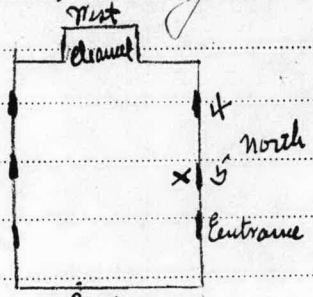 West
Chancel
4
North
X 5
Entrance